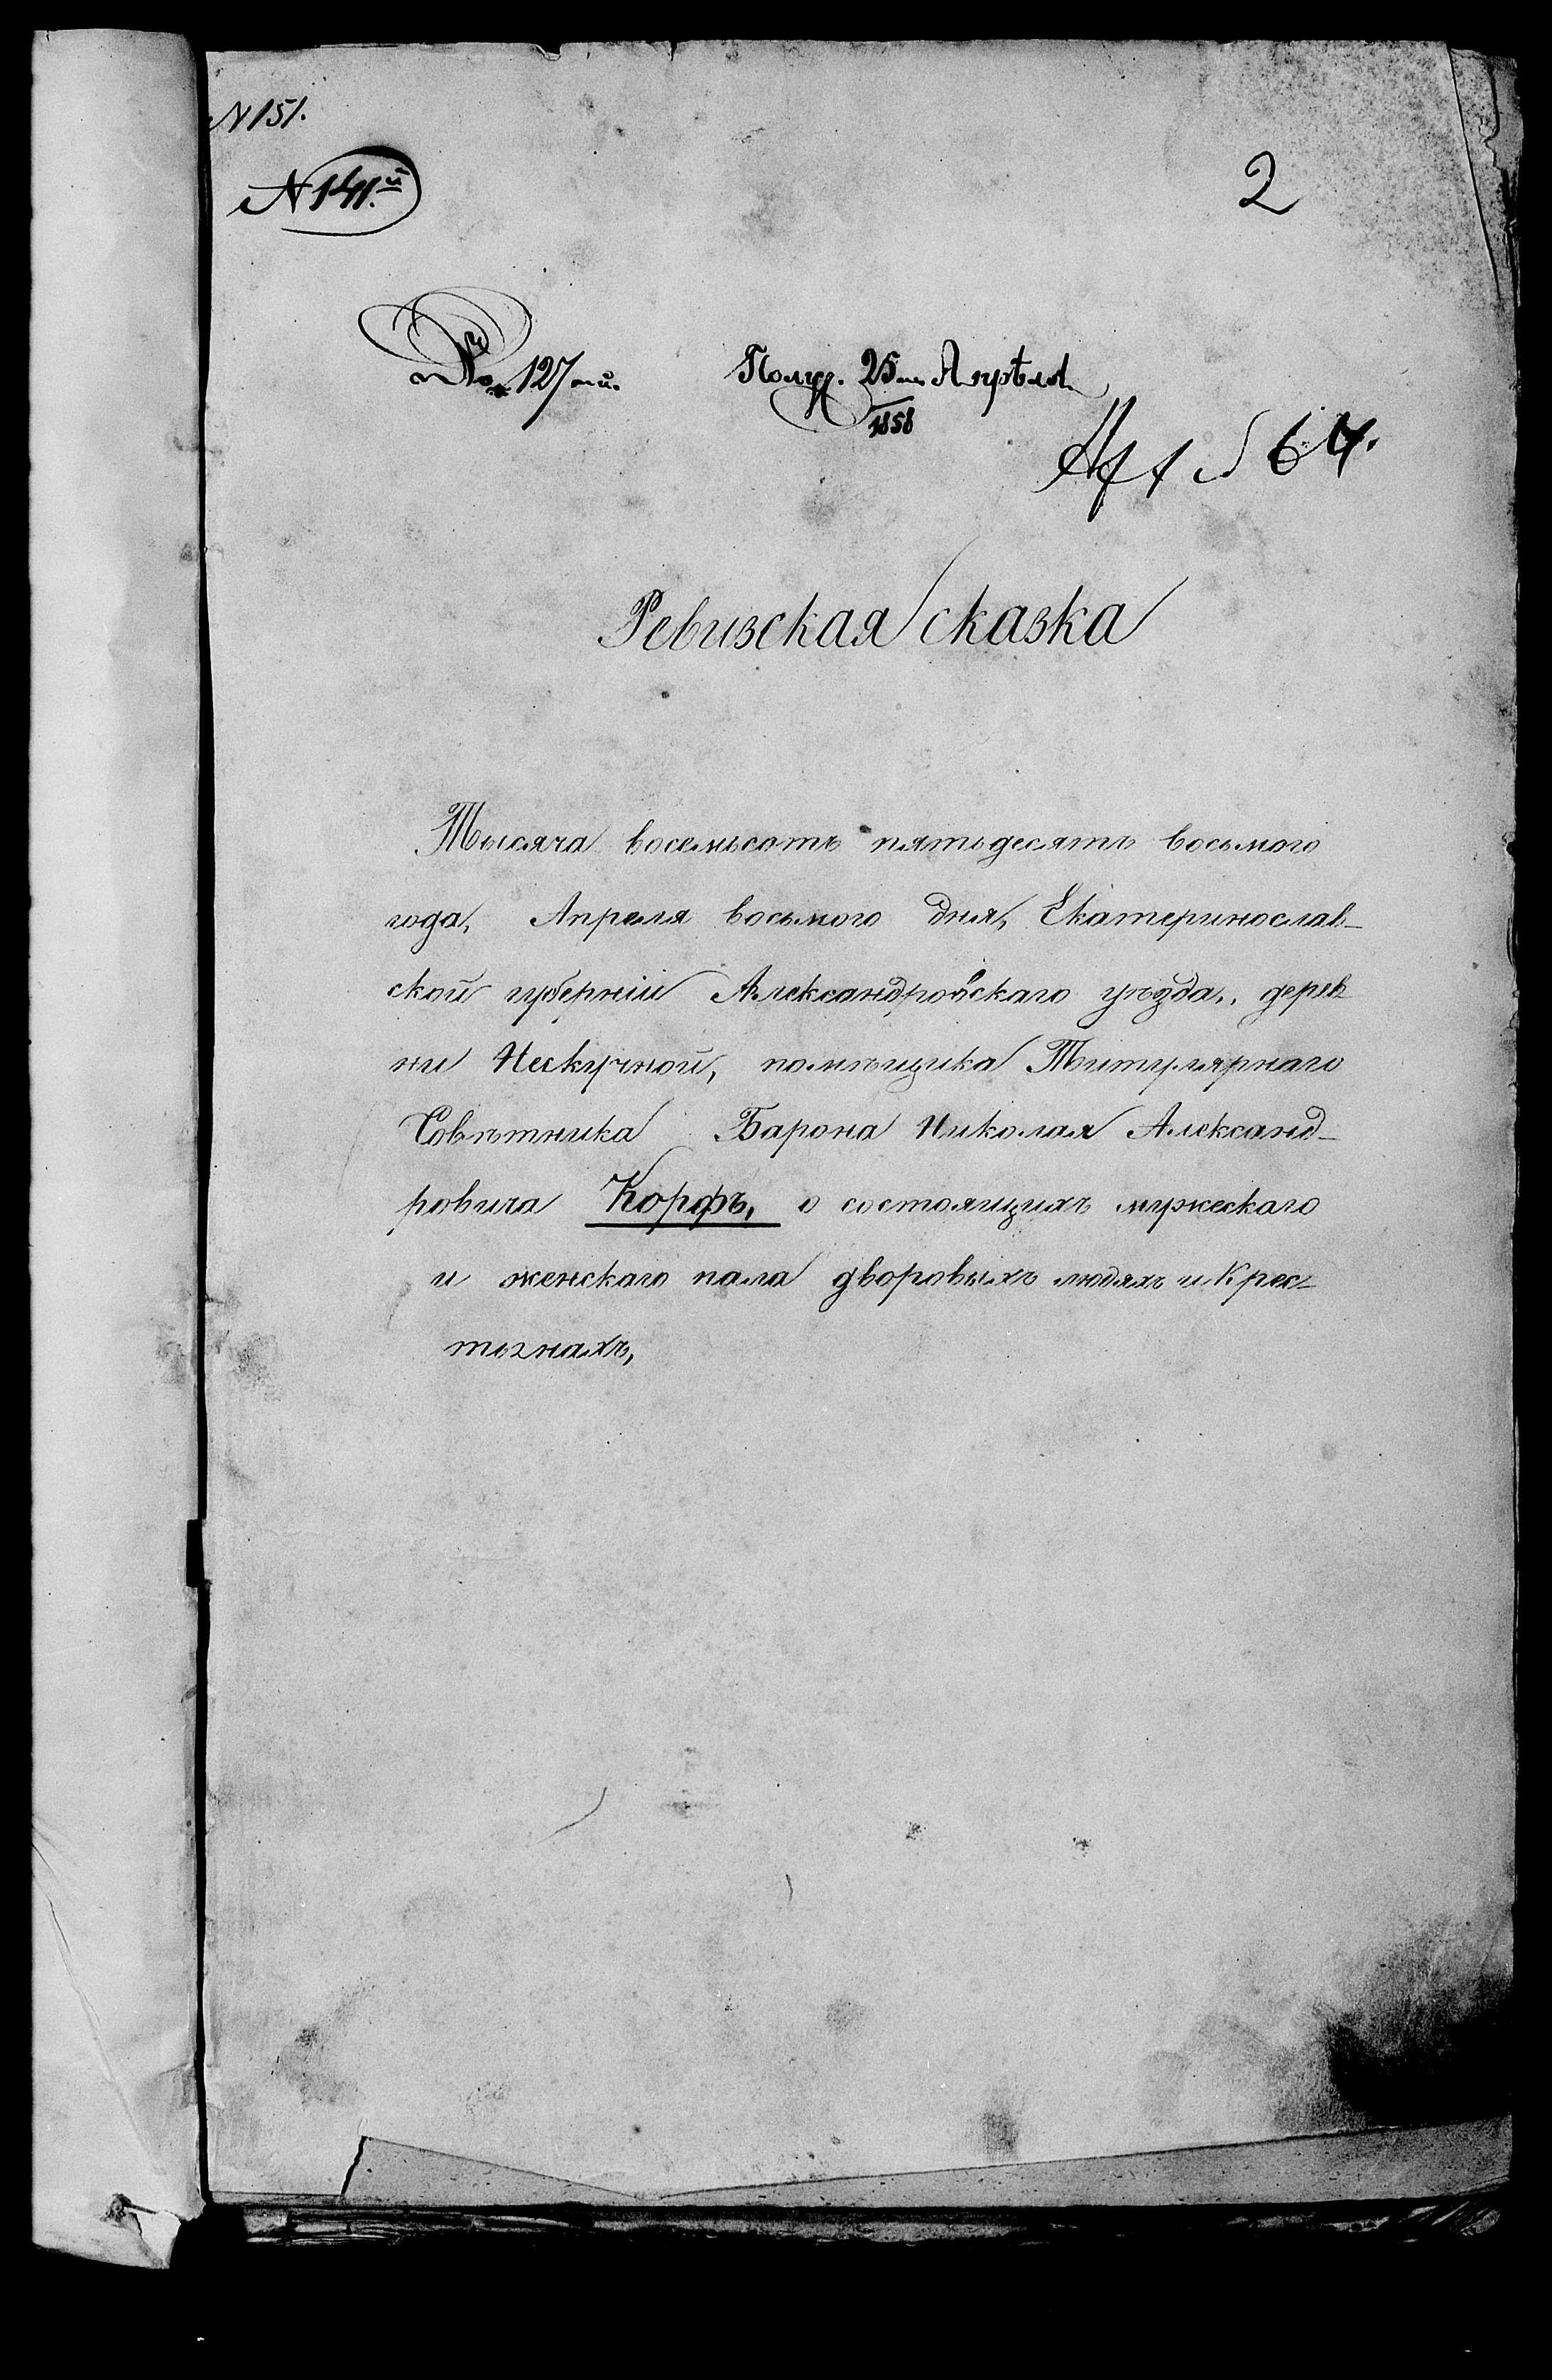 N 151.
N 141.й
2
№ 127 ой.
Получ. 25го Апрѣля
1858
64.
Ревизская сказка
Тысяча восемьсотъ пятьдесятъ восьмого
года, Апреля восьмого дня, Екатеринослав-
ской губерніи Александровскаго уѣзда, дерев-
ни Нескучной, помѣщика Титулярнаго
Совѣтника Барона Николая Александ-
ровича Корфъ, о состоящихъ мужескаго
и женскаго пола дворовыхъ людяхъ и Крес-
тьянахъ,